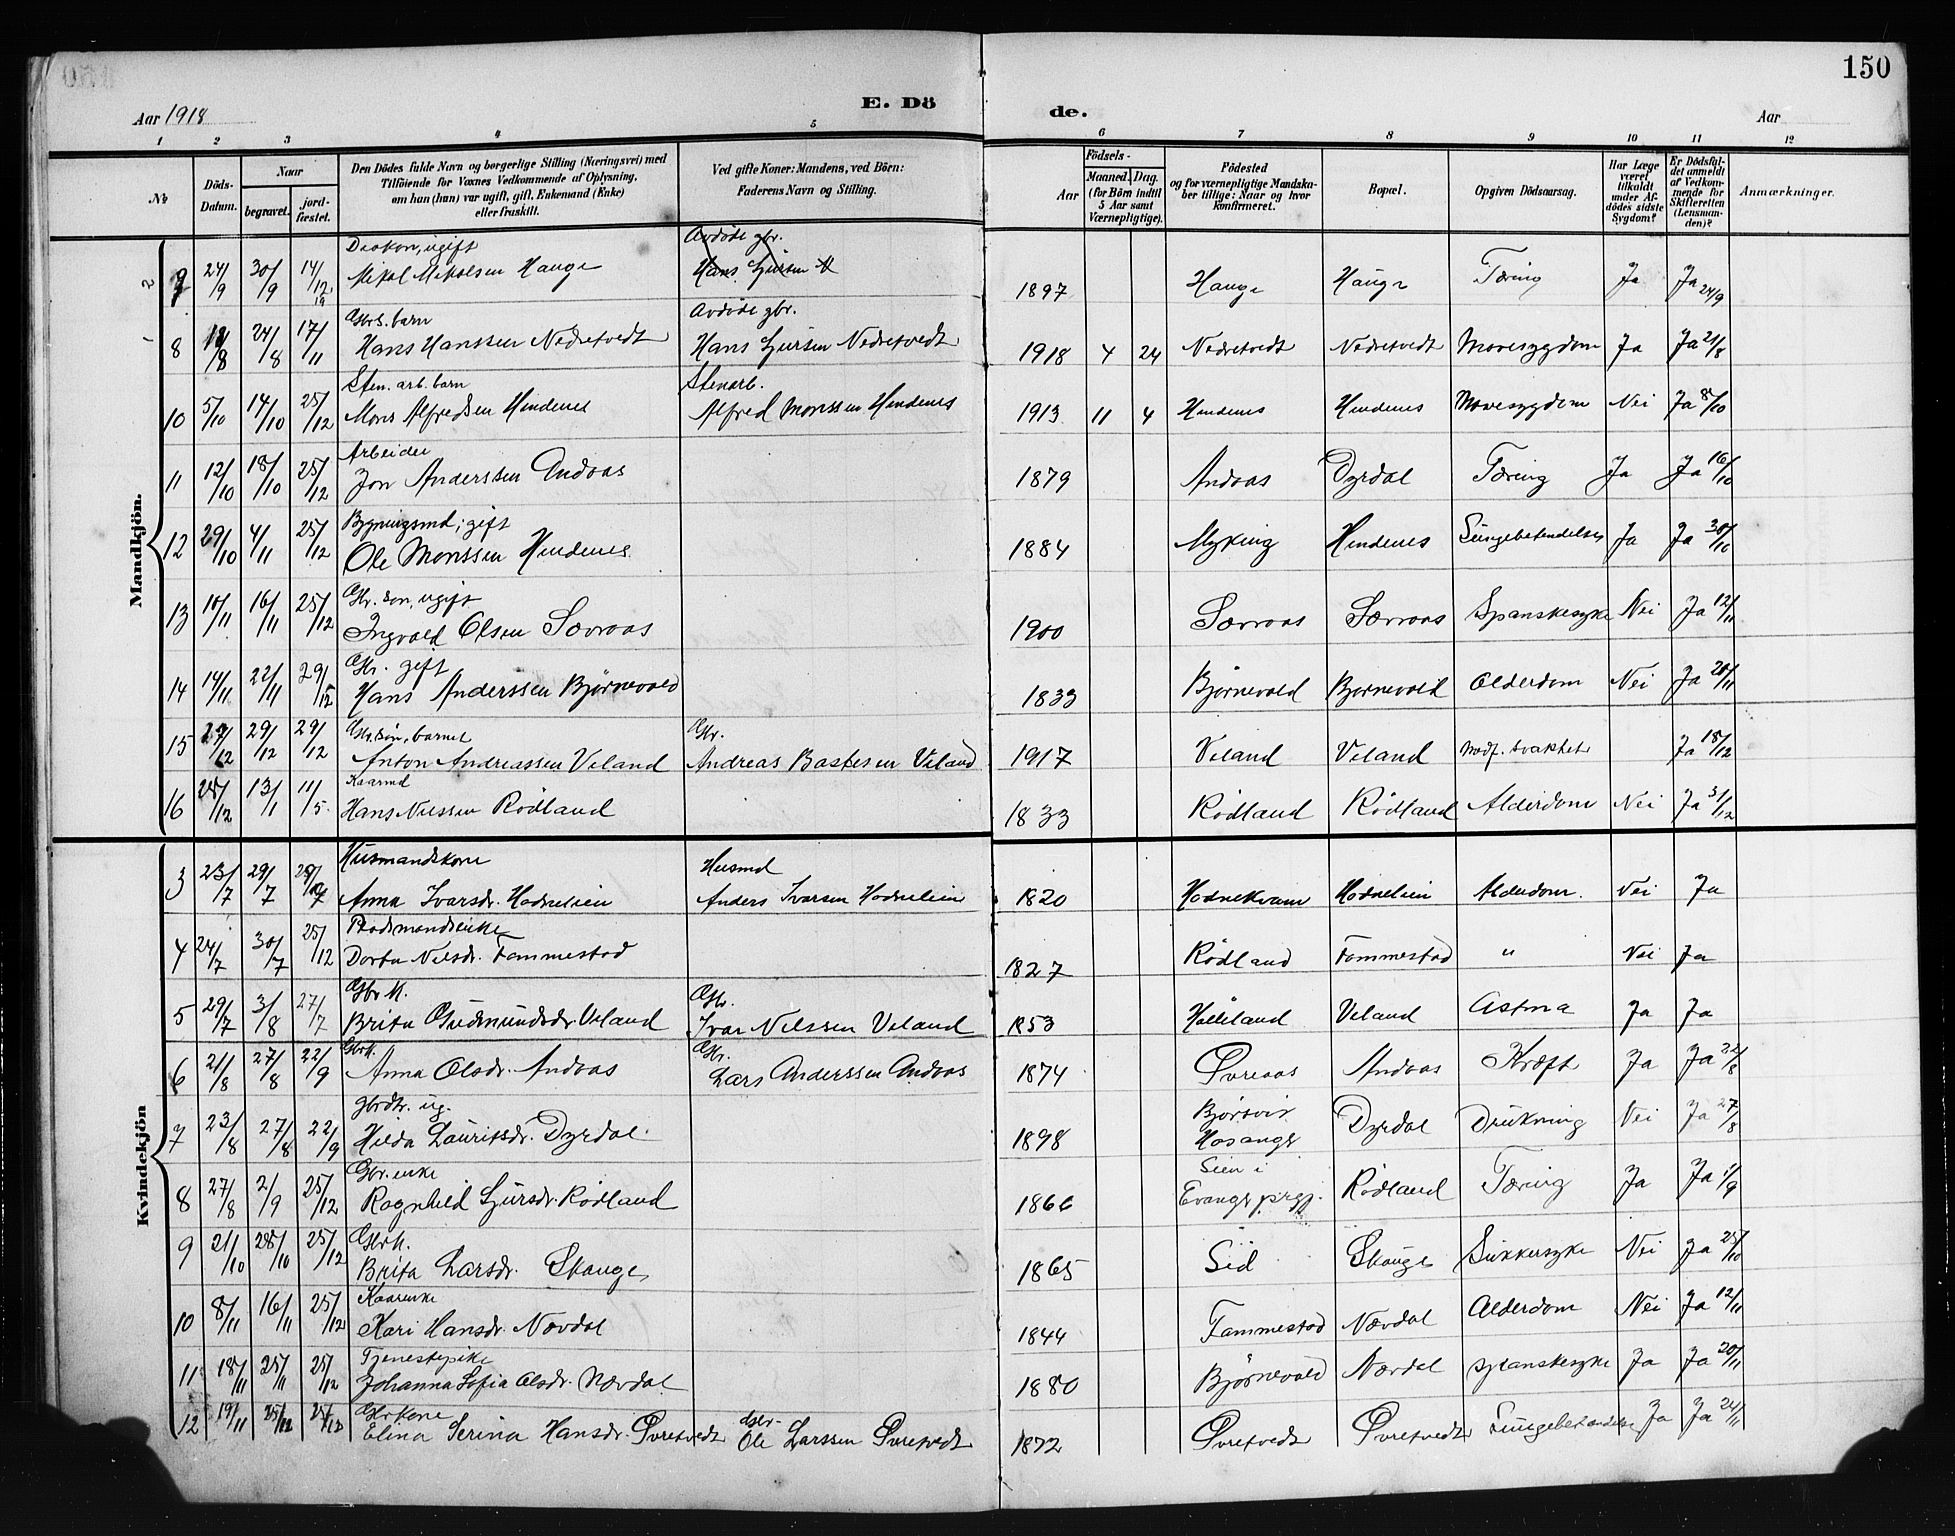 150
Aar 1918
E. Dö
de.
Aar
1 2 3 4 5 6 7 8 9 10 11 12
№
Döds-Datum.
Naar
begravet.
jord-fæstet.
Den Dödes fulde Navn og borgerlige Stilling (Næringsvei) med
Tilföiende for Voxnes Vedkommende af Oplysning,
om han (hun) var ugift, gift, Enkemand (Enke)
eller fraskilt.
Ved gifte Koner: Mandens, ved Börn:
Faderens Navn og Stilling.
Födsels-
Aar
Maaned. Dag.
(for Börn indtil
5 Aar samt
Værnepligtige).
Födested
og for værnepligtige Mandska-
ber tillige: Naar og hvor
konfirmeret.
Bopæl.
Opgiven Dödsaarsag.
Har Læge
været
tilkaldt
under Af-
dödes sidste
Sygdom?
Er Dödsfal-
det anmeldt
af Vedkom-
mende for
Skifteretten
(Lensman-
den)?
Anmærkninger.
Mandkjön.
Diakon, ugift Avdöde gbr.
9 24/9 30/9 14/12 19 Mikal Mikalsen Hauge Hans Gjursen N 1897 Hauge Hauge Tæring Ja Ja 24/9
Gbrs. barn Avdöde gbr.
8 18/8 24/8 17/11 Hans Hanssen Nedretvedt Hans Gjursen Nedretvedt 1918 4 24 Nedretvedt Nedretvedt Mavesygdom Ja Ja 21/8
Sten. arb. barn Stenarb.
10 5/10 14/10 25/12 Mons Alfredsen Hindenes Alfred Monssen Hindenes 1913 11 4 Hindenes Hindenes Mavesygdom Nei Ja 8/10
Arbeider
11 12/10 18/10 25/12 Jon Anderssen Andaas 1879 Andaas Dyrdal Tæring Ja Ja 16/10
Bygningsmd, gift
12 29/10 4/11 25/12 Ole Monssen Hindenes 1884 Myking Hindenes Lungebetendelse Ja Ja 30/10
Gbr. søn, ugift
13 10/11 16/11 25/12 Ingvald Olsen Sævraas 1900 Sævraas Sævraas Spanskesyke Nei Ja 12/11
Gbr. gift
14 14/11 22/11 29/12 Hans Anderssen Bjørnevald 1833 Bjørnevald Bjørnevald Alderdom Nei Ja 20/11
Gbr. søn, barnet Gbr.
15 17/12 29/12 29/12 Anton Andreassen Veland Andreas Bastesen Veland 1917 Veland Veland Medf. svakhet Ja 18/12
Kaarmd
16 28/12 13/1 11/5 Hans Nilssen Rödland 1833 Rödland Rödland Alderdom Nei Ja 31/12
Kvindekjön
Husmandskone Husmd
3 23/7 29/7 Anna Ivarsdr. Hodnelien Anders Ivarsen Hodnelien 1820 Hodnekvam Hodnelien Alderdom. Nei Ja
4 24/7 30/7 25/12 Dorta Nilsdr. Fammestad 1827 Rödland Fammestad " Nei Ja
Gbr. k. Gbr.
5 29/7 3/8 27/7 Brita Gudmundsdr. Veland Ivar Nilssen Veland 1853 Hålleland Veland Astma Ja Ja
Gbr. k. Gbr.
6 21/8 27/8 22/9 Anna Olsdr. Andaas Lars Anderssen Andaas 1874 Øvreaas Andaas Kræft Ja Ja 22/8
Gbrdtr. ug.
7 23/8 27/8 22/9 Hilda Lauritsdr. Dyrdal 1898 Bjørsvik Hosanger Dyrdal Drukning Nei Ja 27/8
Gbr. enke
8 27/8 2/9 25/12 Ragnhild Gjursdr. Rödland 1866 Seim i Evanger prgj. Rödland Tæring Ja Ja 1/9
Gbr. k.
9 21/10 28/10 25/12 Brita Larsdr. Skauge 1865 Sid Skauge Sukkersyke Nei Ja 25/10
Kaarenke
10 8/11 16/11 25/12 Kari Hansdr. Nævdal 1844 Fammestad Nævdal Alderdom Nei Ja 12/11
Tjenestepike
11 18/11 25/11 25/12 Johanna Sofia Olsdr. Nævdal 1880 Bjørnevald Nævdal spanskesyke Ja Ja 20/11
Gbr kone Gbr.
12 19/11 25/12 Elina Serina Hansdr. Øvretvedt Ole Larssen Øvretvedt 1872 Øvretvedt Øvretvedt Lungebetændelse Ja Ja 24/11